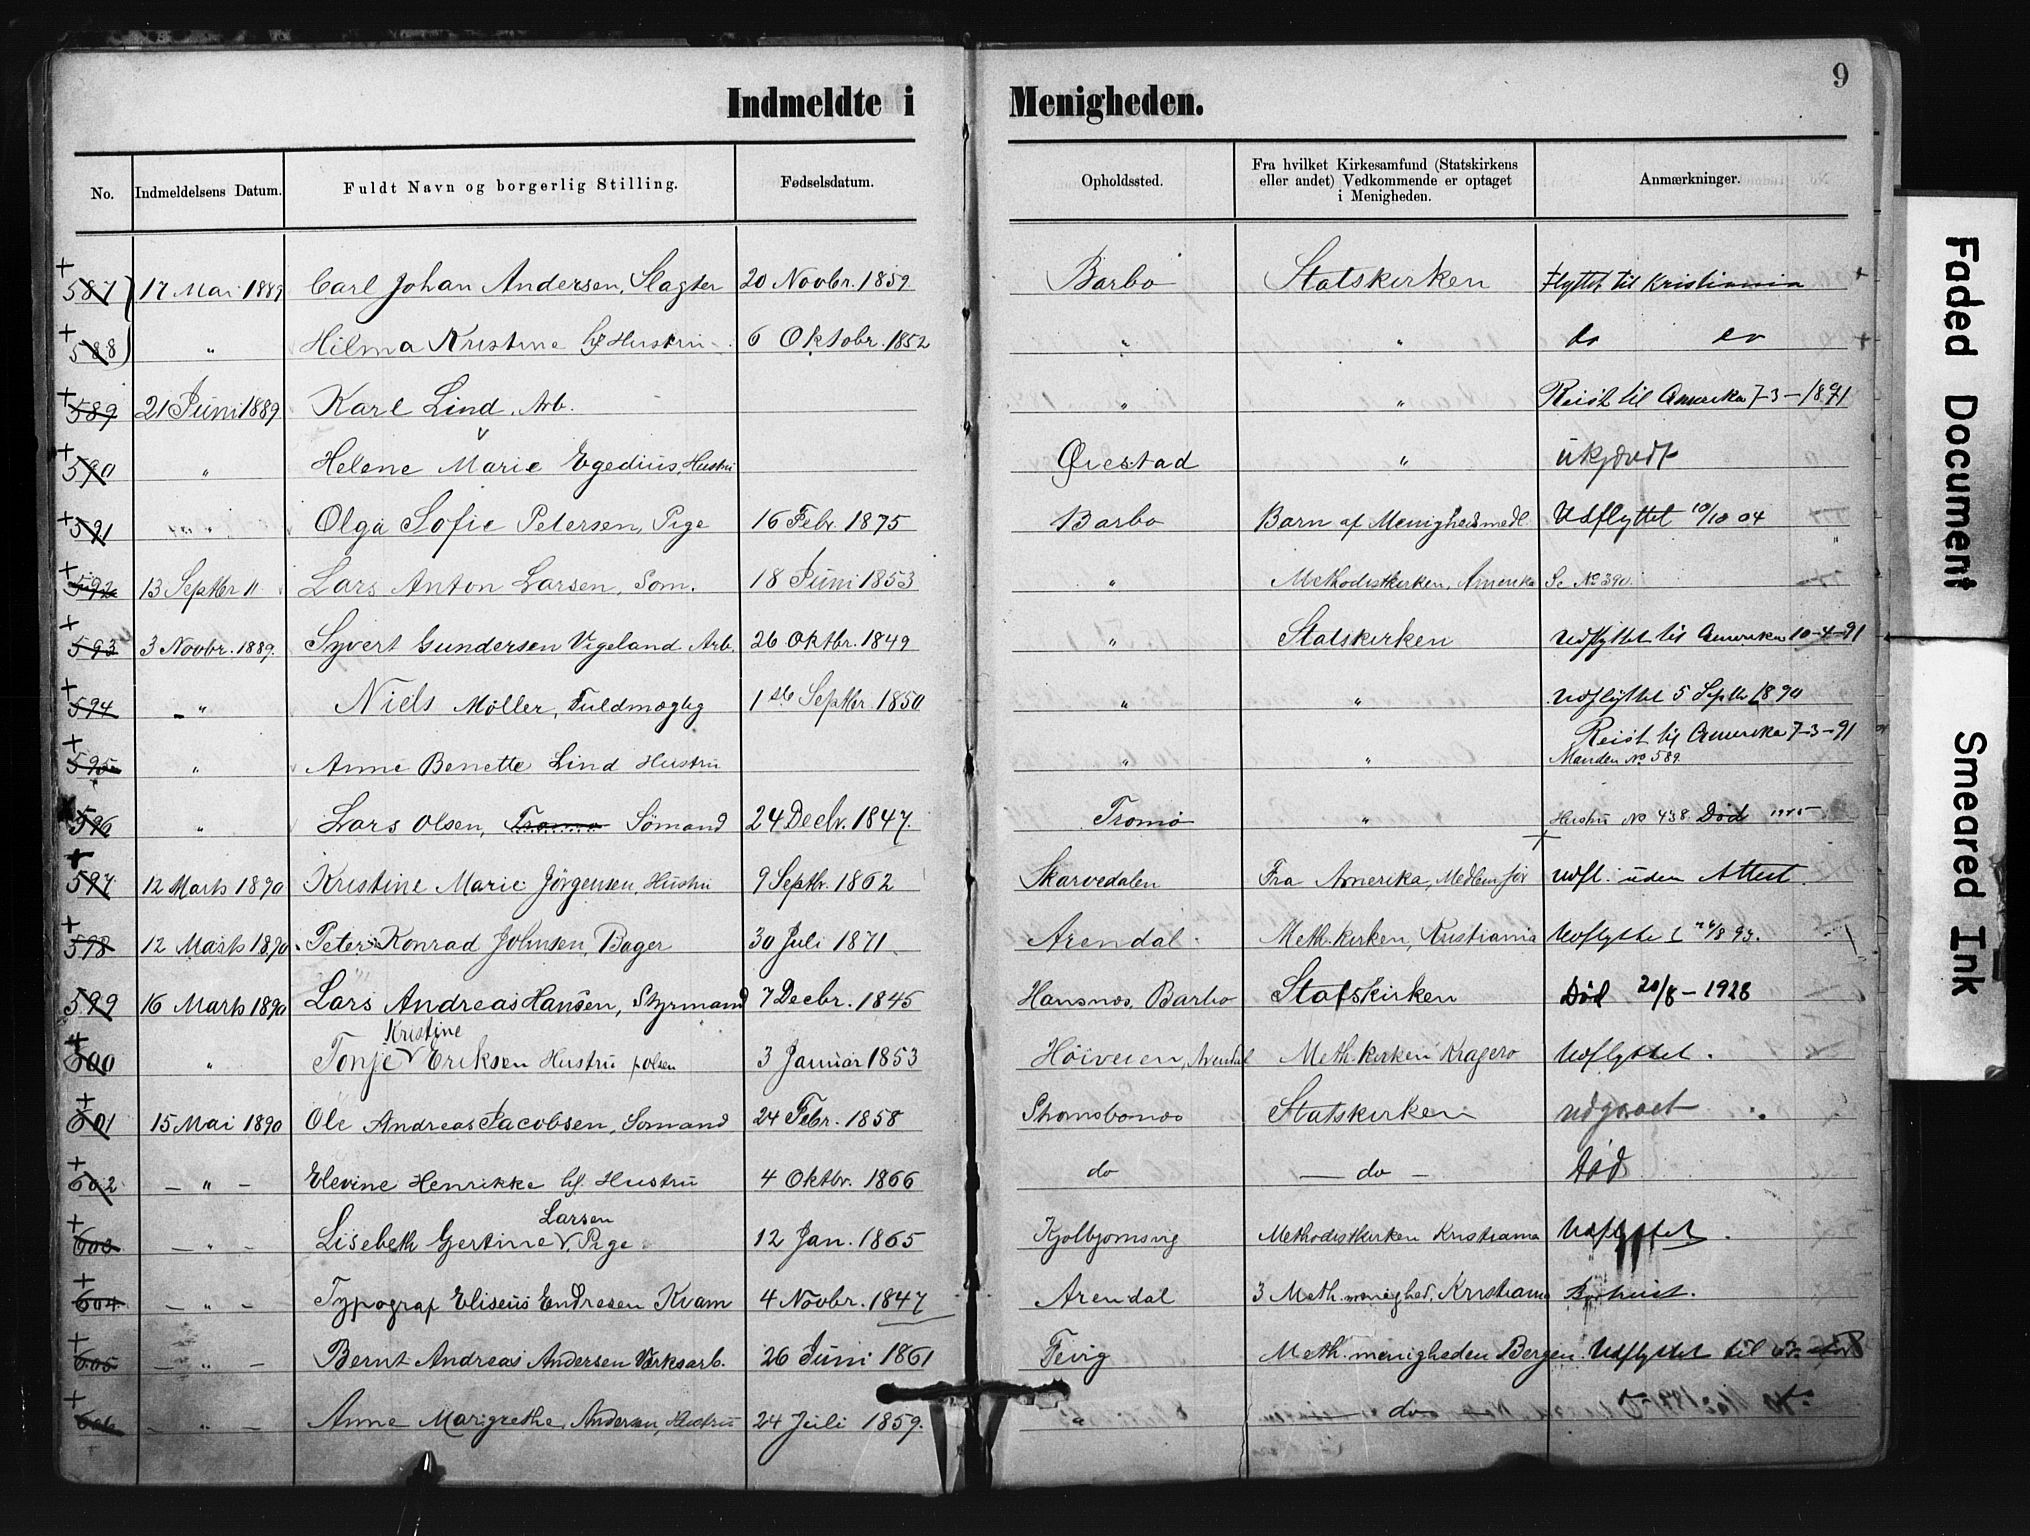 9
Indmeldte i Menigheden.
No. Indmeldelsens Datum. Fuldt Navn og borgerlig Stilling. Fødselsdatum. Opholdssted. Fra hvilket Kirkesamfund (Statskirkens eller andet) Vedkommende er optaget i Menigheden. Anmærkninger.
+ 587) 17 Mai 1889 Carl Johan Andersen, Slagter 20 Novbr. 1859 Barbo Statskirken Flyttet til Kristiania +
+ 588) " Hilma Kristine hs Hustru 6 Oktobr. 1852 " " do do +
+ 589 21 Juni 1889 Karl Lind, Arb. " " Reist til Amerika 7-3-1891
+ 590 " Helene Marie Egedius, Hustru Øiestad " ukjendt
+ 591 " Olga Sofie Petersen, Pige 16 Febr. 1875 Barbo Barn af Menighedsmedl. Udflyttet 10/10 04
+ 592 13 Septbr " Lars Anton Larsen, Søm. 18 Juni 1853 " Methodistkirken, Amerika Se No 390
+ 593 3 Novbr. 1889. Syvert Gundersen Vigeland Arb. 26 Oktbr. 1849 " Statskirken Udflyttet til Amerika 10-4-91
+ 594 " Niels Møller, Fuldmægtig 1ste Septbr. 1850 " " Udflyttet 5 Septbr 1890
Reist til Amerika 7-3-91
+ 595 " Anne Benette Lind Hustru " " Manden No 589
596 " Lars Olsen, Tromø Sømand 24 Decbr. 1847. Tromø " Hustru No 438 Død
+ 597 12 Marts 1890 Kristine Marie Jørgensen, Hustru 9 Septbr. 1862 Skarvedalen Fra Amerika, Medlem før Udfl. uden Attest.
+ 598 12 Marts 1890 Peter Konrad Johnsen, Bager 30 Juli 1871 Arendal Meth. kirken, Kristiania Udflyttet 26/8 93.
599 16 Marts 1890 Lars Andreas Hansen, Styrmand 7 Decbr. 1845 Hansnæs, Barbo Statskirken Død 20/8-1928
Kristine
+ 600 " Tonje V Eriksen Hustru 3 Januar 1853 Høiveien, Arendal Meth. kirken Kragerø Udflyttet.
+ 601 15 Mai 1890 Ole Andreas Jacobsen, Sømand 24 Febr. 1858 Strømsbonæs Statskirken udgaaet
+ 602 - " - Elevine Henrikke hs Hustru 4 Oktbr. 1866 do - do - død
Larsen
+ 603 - " - Lisebeth Gjertine V, Pige 12 Jan. 1865 Kjolbjornsvig Methodistkirken Kristiania Udflyttet.
+ 604 - " - Typograf Eliseus Endresen Kvam 4 Novbr. 1847 Arendal 3 Meth. menighed, Kristiania Bortreist.
+ 605 - " - Bernt Andreas Andersen Værksarb. 26 Juni 1861 Fevig Meth. menigheden Bergen Udflyttet til
+ 606 - " - Anne Margrethe Andersen, Hustru 24 Juli 1859. " do
Faded Document
Smeared Ink